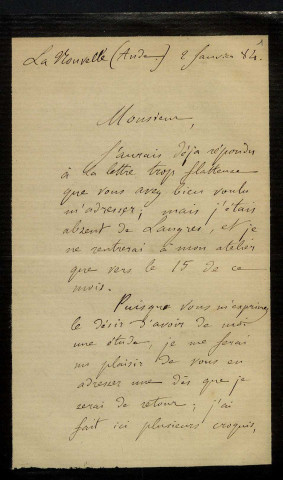 La Nouvelle (Aude) 2 Janvier 84.
Monsieur,
J'aurais déja répondu
à la lettre trop flatteuse
que vous avez bien voulu
m'adresser; mais j'étais
absent de Langres, et je
ne rentrerai à mon atelier
que vers le 15 de ce
mois.
Puisque vous m'exprimez
le désir d'avoir de moi
une étude, je me ferai
un plaisir de vous en
adresser une dès que je
serai de retour; j'ai
fait ici plusieurs croquis,